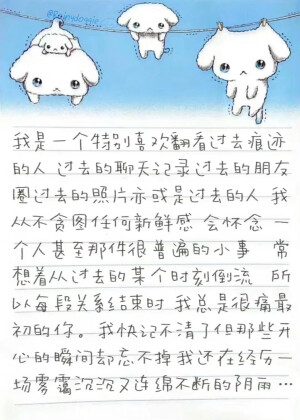 我是一个特别喜欢翻看过去痕迹
的人 过去的聊天记录过去的朋友
圈过去的照片亦或是过去的人 我
从不贪图任何新鲜感 会怀念一
个人甚至那件很普遍的小事 常
想着从过去的某个时刻倒流 所
以每段关系结束时 我总是很痛最
初的你。我快记不清了但那些开
心的瞬间却忘不掉我还在经历一
场雾霭沉沉又连绵不断的阴雨…